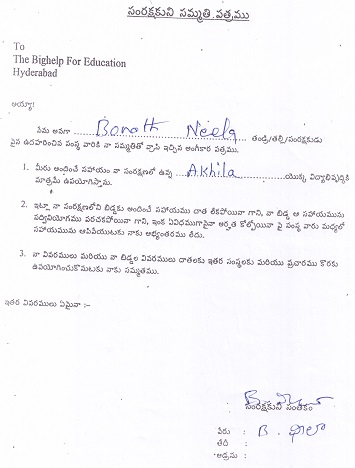 సంరక్షకుని సమ్మతి పత్రము
To
The Bighelp For Education
Hyderabad
అయ్యా!
నేను అనగా Bonoth Neela తండ్రి/తల్లి/సంరక్షకుడు
పైన ఉదహరించిన సంస్థ వారికి నా సమ్మతితో వ్రాసి ఇచ్చిన అంగీకార పత్రము.
1. మీరు అందించే సహాయం నా సంరక్షణలో ఉన్న Akhila యొక్క విద్యాభివృద్ధికి
మాత్రమే ఉపయోగిస్తాము.
2. ఇట్లా నా సంరక్షణలోని బిడ్డకు అందించే సహాయము దాత లేకపోయినా గాని, నా బిడ్డ ఆ సహాయమును
సద్వినియోగము పరచకపోయినా గాని, ఇంక ఏవిధముగానైనా అర్హత కోల్పోయినా పై సంస్థ వారు మధ్యలో
సహాయమును ఆపివేయుటకు నాకు అభ్యంతరము లేదు.
3. నా వివరములు మరియు నా బిడ్డల వివరములు దాతలకు ఇతర సంస్థలకు మరియు ప్రచారము కొరకు
ఉపయోగించుకొనుటకు నాకు సమ్మతము.
ఇతర వివరములు ఏమైనా :-
సంరక్షకుని సంతకం
పేరు : B.
తేది :
అడ్రసు :